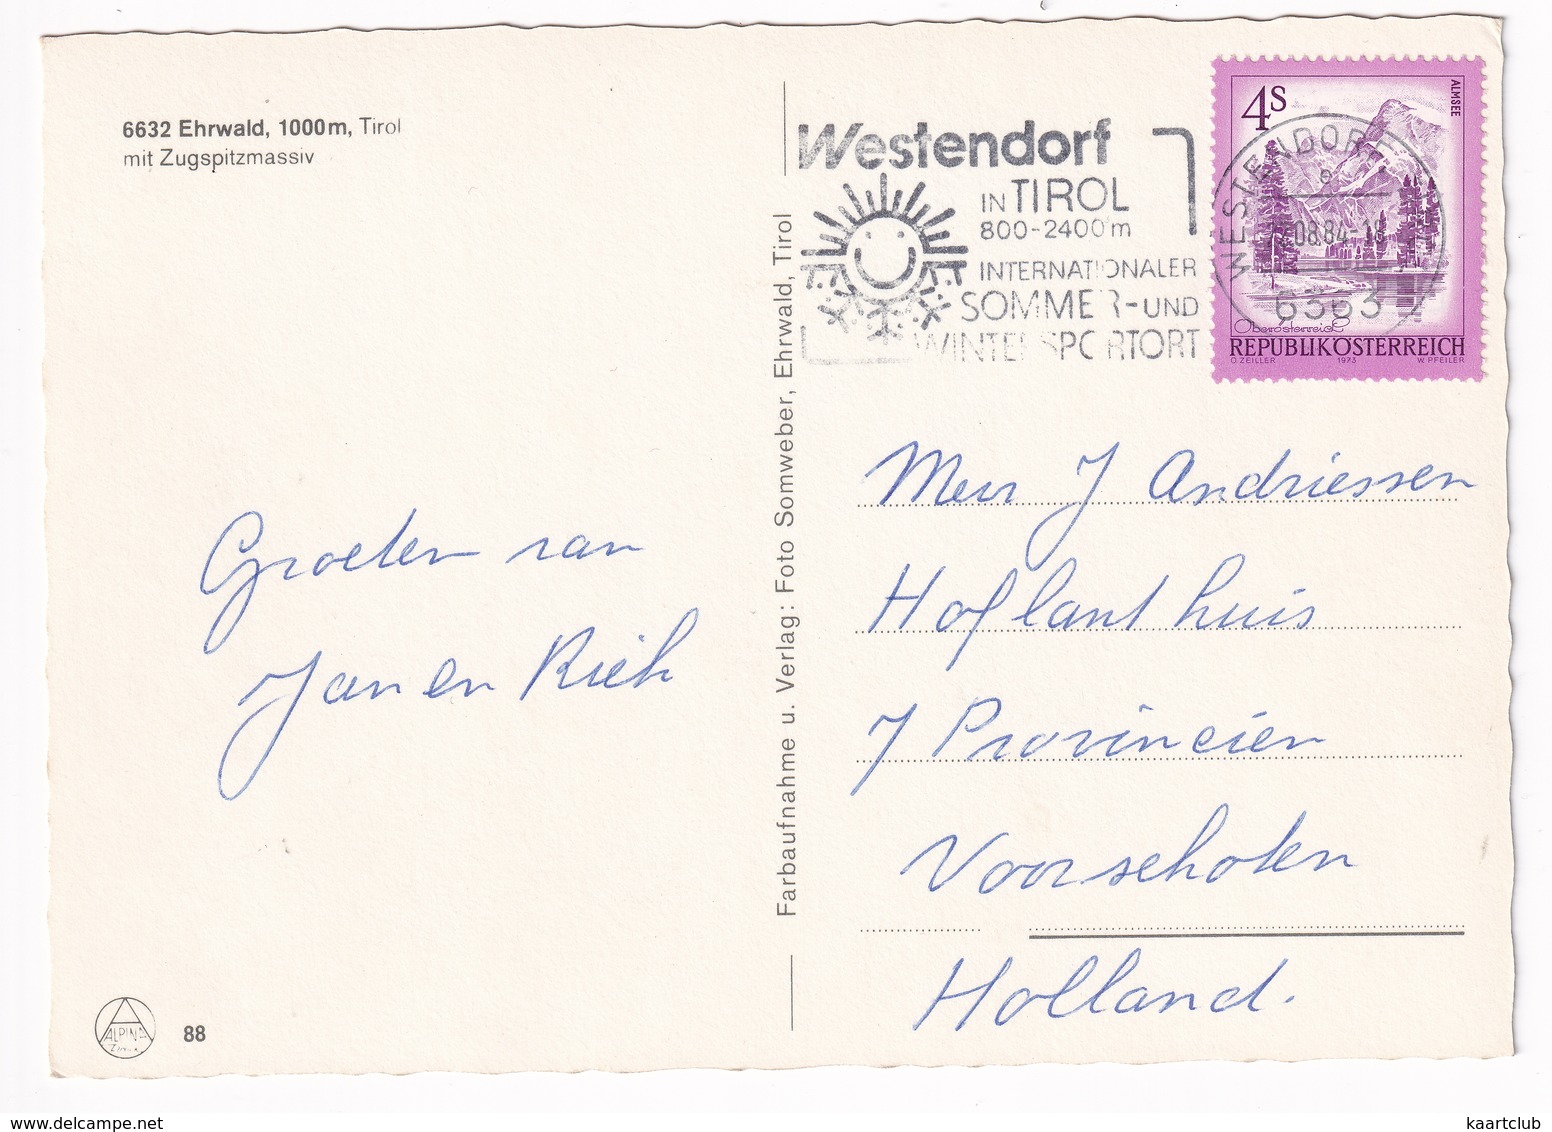 6632 Ehrwald, 1000m, Tirol
mit Zugspitzmassiv
Groeten van
Jan en Riek
ALPINA
88
Farbaufnahme u. Verlag: Foto Somweber, Ehrwald, Tirol
Westendorf
IN TIROL
800-2400m
INTERNATIONALER
SOMMER-UND
WINTERSPORTORT
WESTENDORF
08.84-18
6363
4S
ALMSEE
Oberösterreich
REPUBLIK ÖSTERREICH
O. ZEILLER 1973 W. PFEILER
Mevr J Andriessen
Hoflant huis
7 Provinciën
Voorschoten
Holland.
delcampe.net
kaartclub